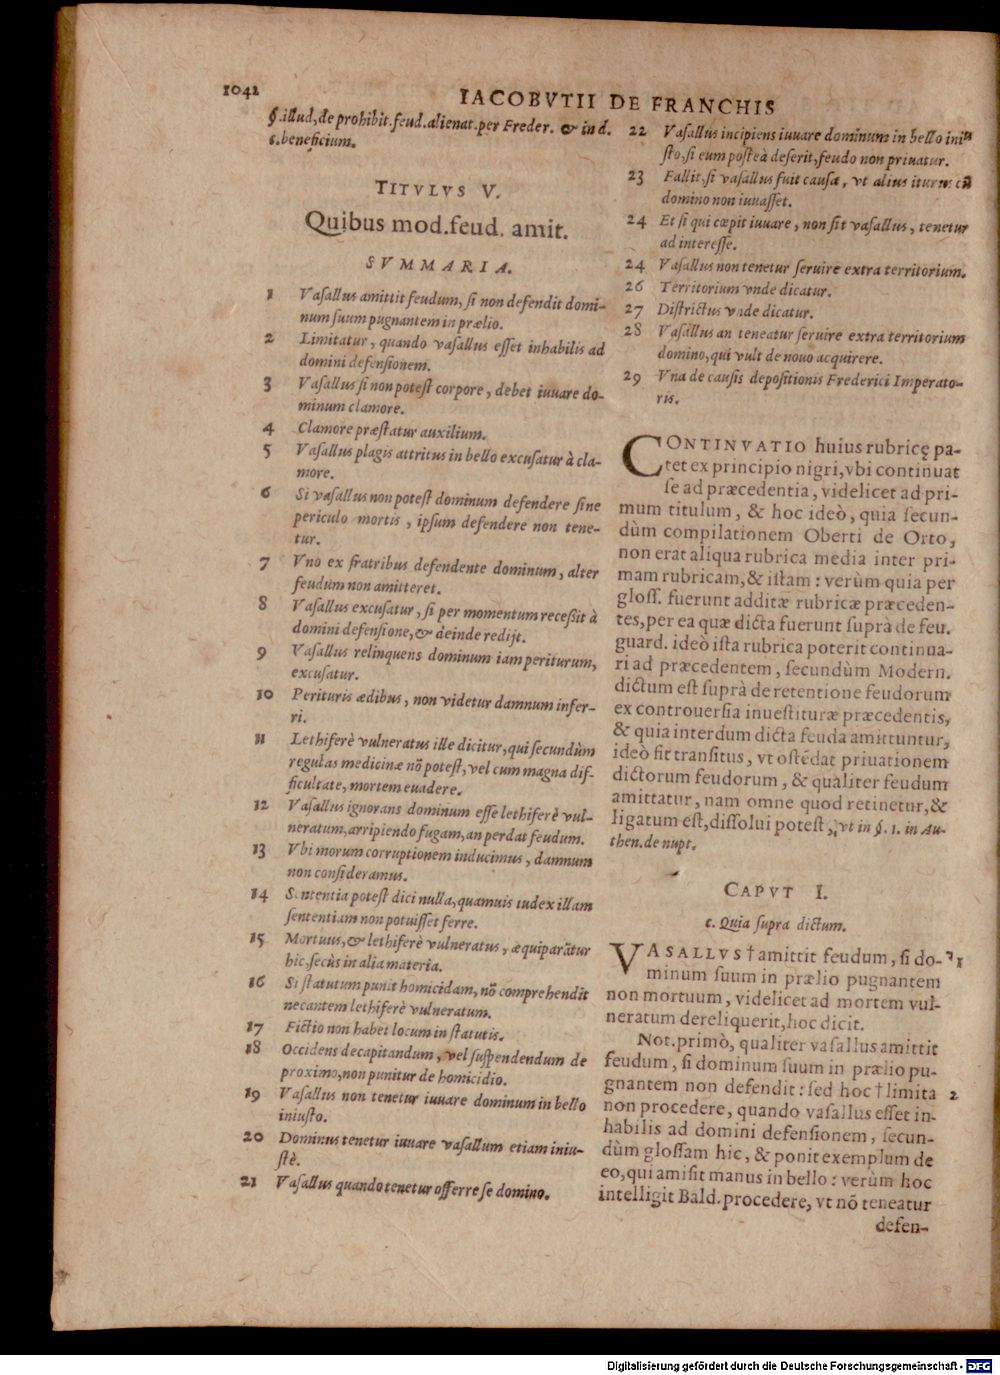 1042
IACOBVTII DE FRANCHIS
§. illud, de prohibit. feud. alienat. per Freder. & in d.
c. beneficium.
TITVLVS V.
Quibus mod. feud. amit.
SVMMARIA.
1 Vasallus amittit feudum, si non defendit domi-
num suum pugnantem in prælio.
2 Limitatur, quando vasallus esset inhabilis ad
domini defensionem.
3 Vasallus si non potest corpore, debet iuuare do-
minum clamore.
4 Clamore præstatur auxilium.
5 Vasallus plagis attritus in bello excusatur à cla-
more.
6 Si vasallus non potest dominum defendere sine
periculo mortis, ipsum defendere non tene-
tur.
7 Vno ex fratribus defendente dominum, alter
feudum non amitteret.
8 Vasallus excusatur, si per momentum recessit à
domini defensione, & deinde redijt.
9 Vasallus relinquens dominum iam periturum,
excusatur.
10 Perituris ædibus, non videtur damnum infer-
ri.
11 Lethiferè vulneratus ille dicitur, qui secundùm
regulas medicinæ nō potest, vel cum magna dif-
ficultate, mortem euadere.
12 Vasallus ignorans dominum esse lethiferè vul-
neratum, arripiendo fugam, an perdat feudum.
13 Vbi morum corruptionem inducimus, damnum
non consideramus.
14 Sententia potest dici nulla, quamuis iudex illam
sententiam non potuisset ferre.
15 Mortuus, & lethiferè vulneratus, æquiparātur
hic, secùs in alia materia.
16 Si statutum punit homicidam, nō comprehendit
necantem lethiferè vulneratum.
17 Fictio non habet locum in statutis.
18 Occidens decapitandum, vel suspendendum de
proximo, non punitur de homicidio.
19 Vasallus non tenetur iuuare dominum in bello
iniusto.
20 Dominus tenetur iuuare vasallum etiam iniu-
stè.
21 Vasallus quando tenetur offerre se domino.
22 Vasallus incipiens iuuare dominum in bello iniu
sto, si eum posteà deserit, feudo non priuatur.
23 Fallit, si vasallus fuit causa, vt alius iturus cū
domino non iuuasset.
24 Et si qui cœpit iuuare, non sit vasallus, tenetur
ad interesse.
24 Vasallus non tenetur seruire extra territorium.
26 Territorium vnde dicatur.
27 Districtus vnde dicatur.
28 Vasallus an teneatur seruire extra territorium
domino, qui vult de nouo acquirere.
29 Vna de causis depositionis Frederici Imperato-
ris.
CONTINVATIO huius rubricę pa-
tet ex principio nigri, vbi continuat
se ad præcedentia, videlicet ad pri-
mum titulum, & hoc ideò, quia secun-
dùm compilationem Oberti de Orto,
non erat aliqua rubrica media inter pri-
mam rubricam, & istam: verùm quia per
gloss. fuerunt additæ rubricæ præceden-
tes, per ea quæ dicta fuerunt suprà de feu.
guard. ideò ista rubrica poterit continua-
ri ad præcedentem, secundùm Modern.
dictum est suprà de retentione feudorum
ex controuersia inuestituræ præcedentis,
& quia interdum dicta feuda amittuntur,
ideò fit transitus, vt ostēdat priuationem
dictorum feudorum, & qualiter feudum
amittatur, nam omne quod retinetur, &
ligatum est, dissolui potest, vt in §. 1. in Au-
then. de nupt.
CAPVT I.
c. Quia supra dictum.
VASALLVS † amittit feudum, si do- 1
minum suum in prælio pugnantem
non mortuum, videlicet ad mortem vul-
neratum dereliquerit, hoc dicit.
Not. primò, qualiter vasallus amittit
feudum, si dominum suum in prælio pu-
gnantem non defendit: sed hoc † limita 2
non procedere, quando vasallus esset in-
habilis ad domini defensionem, secun-
dùm glossam hic, & ponit exemplum de
eo, qui amisit manus in bello: verùm hoc
intelligit Bald. procedere, vt nō teneatur
defen-
Digitalisierung gefördert durch die Deutsche Forschungsgemeinschaft - DFG